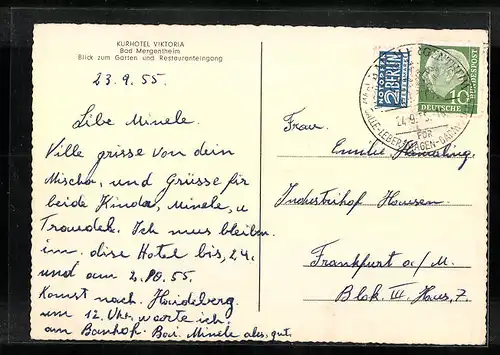 KURHOTEL VIKTORIA
Bad Mergentheim
Blick zum Garten und Restauranteingang
23.9.55.
Libe Minele.
Ville grisse von dein
Mischa, und Grüsse für
beide Kinder, Minele, u
Traudel. Ich mus bleiben
im. dise Hotel bis, 24.
und am 2.10.55.
Komst nach. Haideberg
um 12. Uhr. warte ich
am Banhof. Bai. Minele ales, gut.
NOTOPFER
2 BERLIN
STEUERMARKE
DEUTSCHE BUNDESPOST
10
24.9.
FÜR
Frau.
Emilie
Industriehof Hausen
Frankfurt a/M.
Blok. III. Haus, 7.